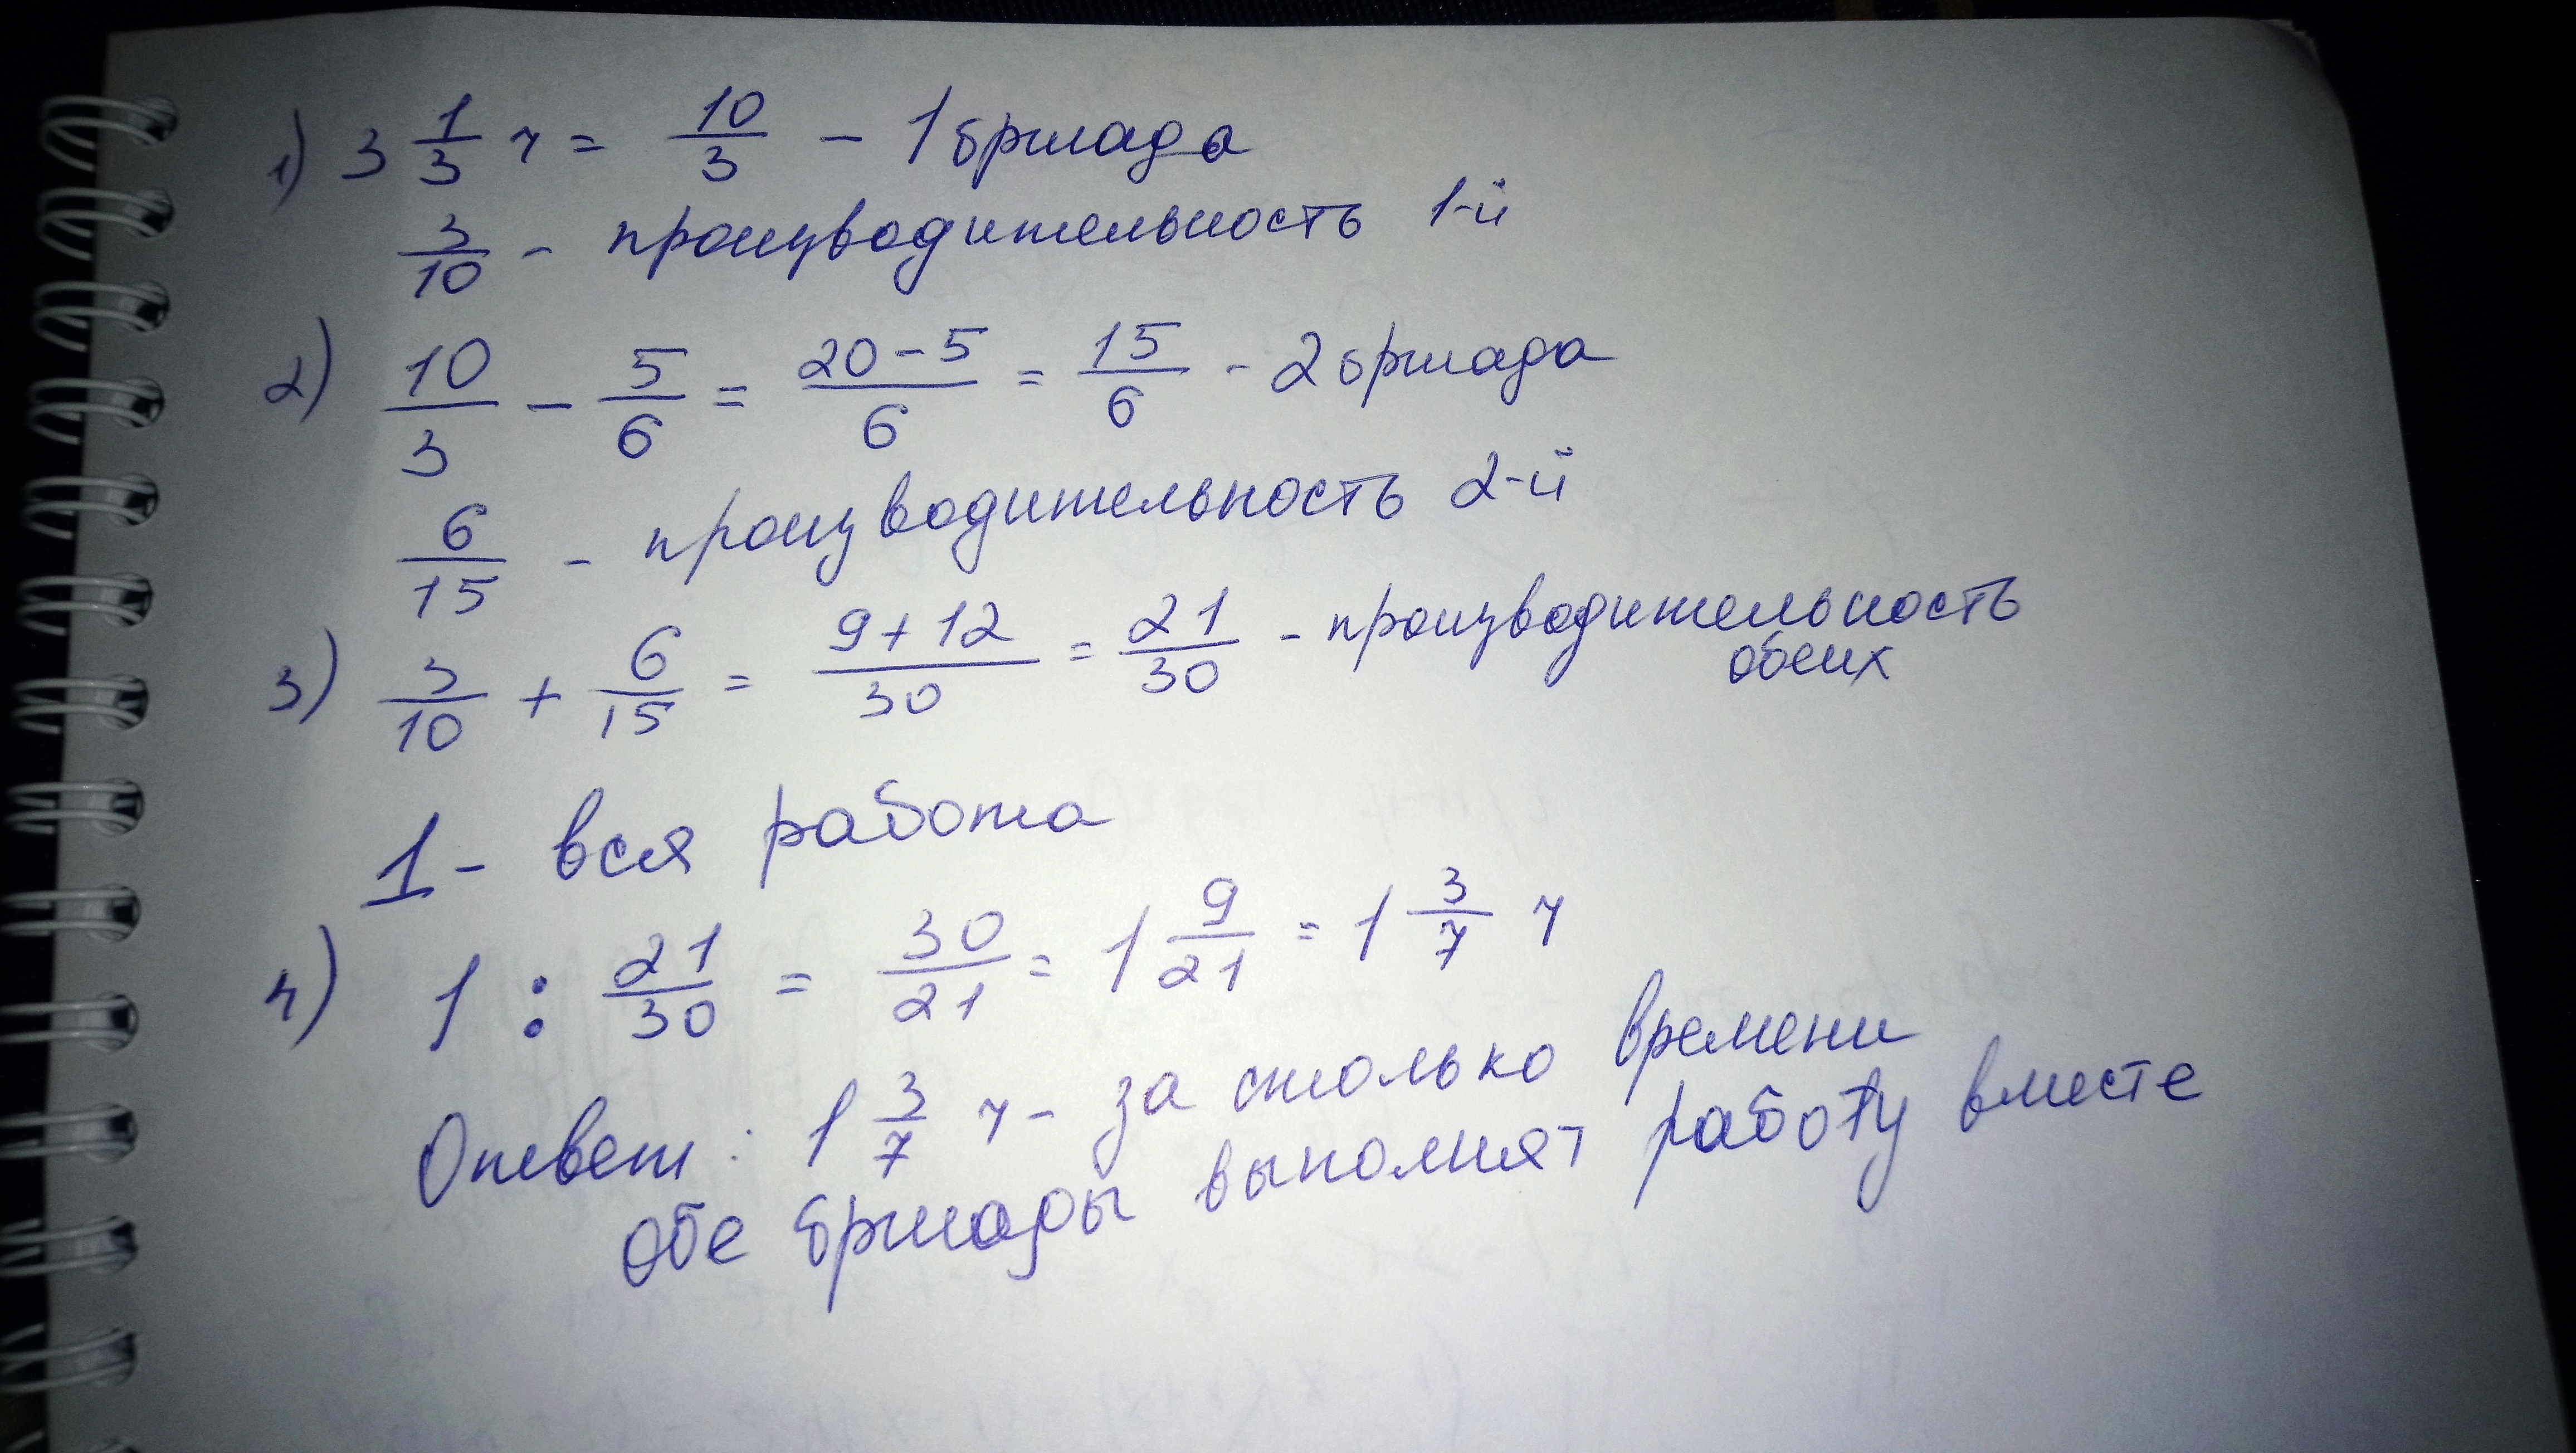 1) 3 1/3 ч = 10/3 - 1 бригада
3/10 - производительность 1-й
2) 10/3 - 5/6 = 20-5/6 = 15/6 - 2 бригада
6/15 - производительность 2-й
3) 3/10 + 6/15 = 9+12/30 = 21/30 - производительность
обеих
1 - вся работа
4) 1 : 21/30 = 30/21 = 1 9/21 = 1 3/7 ч
Ответ: 1 3/7 ч - за столько времени
обе бригады выполнят работу вместе